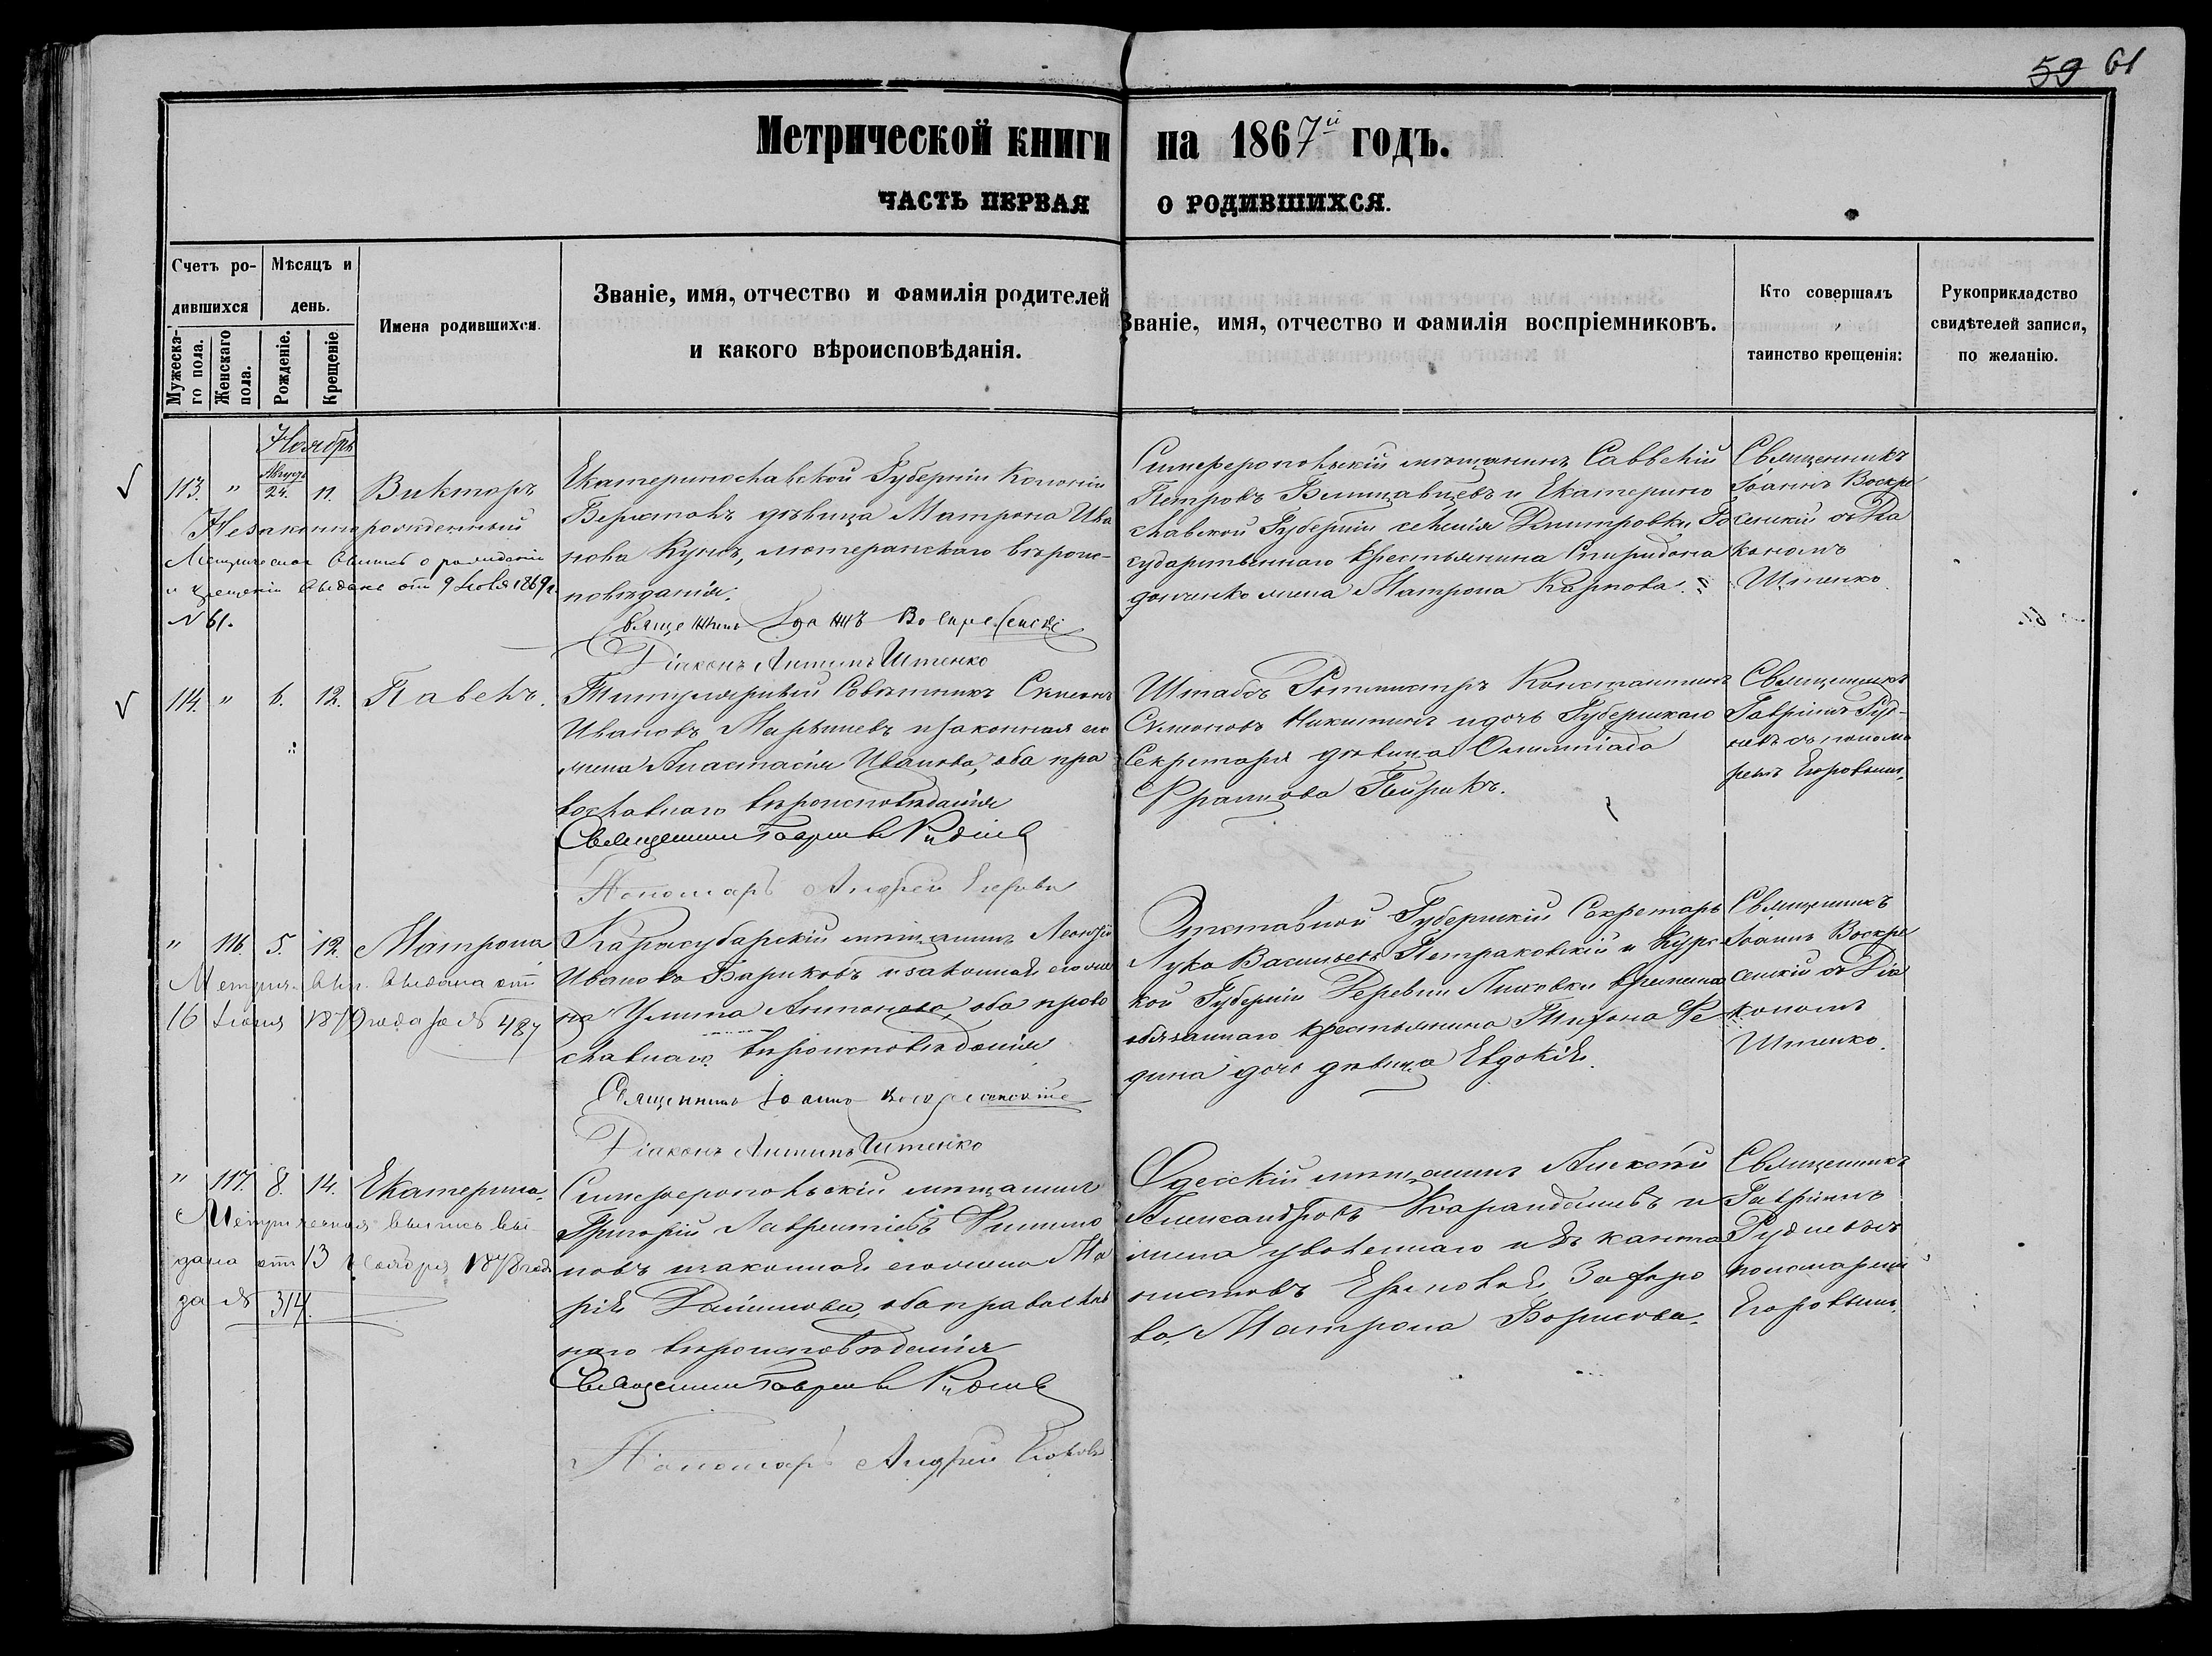 59 61
Метрической книги на 1867й годъ.
ЧАСТЬ ПЕРВАЯ О РОДИВШИХСЯ.
Счетъ родившихся
Мѣсяцъ и день.
Мужескаго пола.
Женскаго пола.
Рожденіе.
Крещеніе
Имена родившихся.
Званіе, имя, отчество и фамилія родителей
и какого вѣроисповѣданія.
Званіе, имя, отчество и фамилія воспріемниковъ.
Кто совершалъ
таинство крещенія:
Рукоприкладство
свидѣтелей записи,
по желанію.
Ноябрь
113. " Августъ 24. 11. Викторъ
Незаконнорожденный
Метрическая выпись о рожденіи
и крещеніи выдана отъ 9 1869 г.
№ 61.
Екатеринославской Губерніи Колоніи
дѣвица Матрона Ива
нова Кунъ, лютеранскаго вѣроис-
повѣданія.
Священникъ Іоаннъ Воскресенскій
Діаконъ Антипъ Штенко
Симферопольскій мѣщанинъ Савветій
Петровъ и Екатерино
славской Губерніи селенія Дмитровки Го
сударственнаго крестьянина Спиридона
жена Матрона Карпова.
Священникъ
Іоаннъ Воскре
сенскій съ Діа
кономъ
Штенко
114. " 6. 12. Павелъ.
Титулярный Совѣтникъ Семенъ
Ивановъ и законная его
жена Анастасія Иванова, оба пра
вославнаго вѣроисповѣданія
Священникъ Гавріилъ Рудневъ
Пономарь Андрей Егоровъ
Штабсъ Ротмистръ Константинъ
Семеновъ Никитинъ и дочь Губернскаго
Секретаря дѣвица Олимпіада
Францова
Священникъ
Гавріилъ Руд-
невъ съ понома
ремъ Егоровымъ.
" 116. 5. 12. Матрона
Метрич. вып. выдана отъ
16 Іюня 1879 года за № 487
Карасубазарскій мѣщанинъ Леонтій
Ивановъ Бариковъ и законная его же
на Улита Антонова, оба право
славнаго вѣроисповѣданія
Священникъ Іоаннъ Воскресенскій
Діаконъ Антипъ Штенко
Отставной Губернскій Секретарь
Лука Васильевъ Петраковскій и Курс
кой Губерніи Деревни временно
обязаннаго крестьянина Тихона Фе
дина дочь дѣвица Евдокія.
Священникъ
Іоаннъ Воскре
сенскій съ Діа
кономъ
Штенко.
" 117. 8. 14. Екатерина.
Метрическая выпись вы
дана отъ 13 Ноября 1878 года
за № 314.
Симферопольскій мѣщанинъ
Григорій Лаврентіевъ Филипо
новъ и законная его жена Ма
рія Данилова, оба православ
наго вѣроисповѣданія
Священникъ Гавріилъ Рудневъ
Пономарь Андрей Егоровъ
Одесскій мѣщанинъ Алексѣй
Александровъ Карандашевъ и
жена уволеннаго изъ канто
нистовъ
ва, Матрона Борисова.
Священникъ
Гавріилъ
Рудневъ съ
пономаремъ
Егоровымъ.